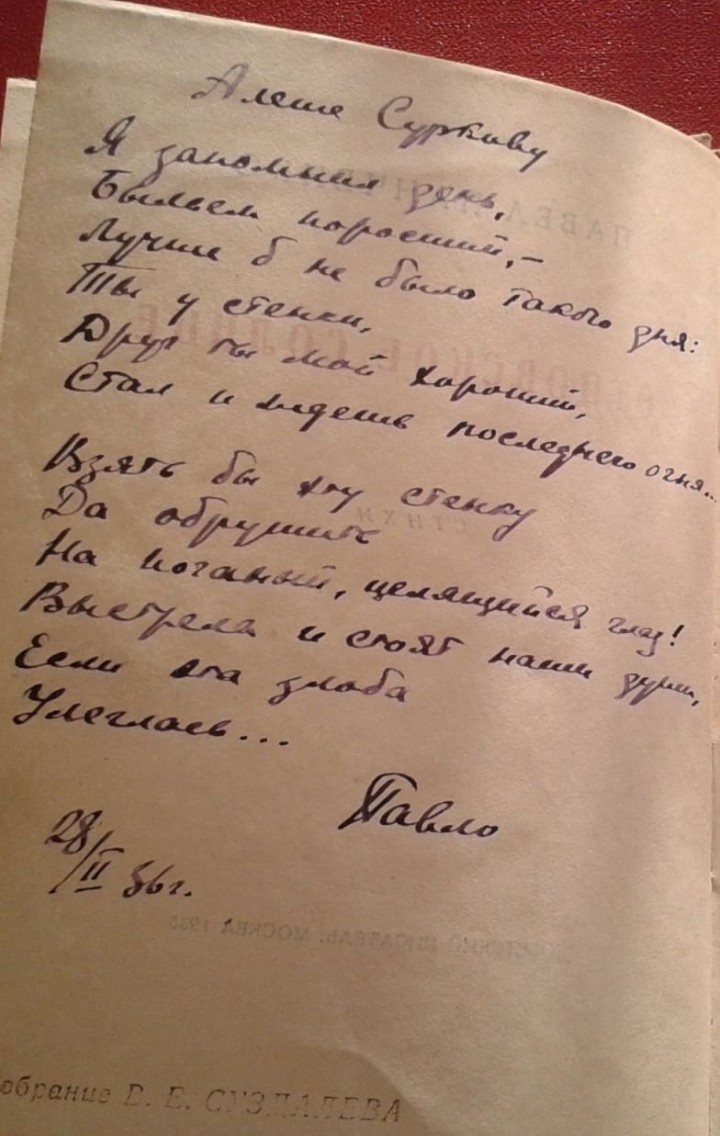 Алеше Суркову
Я запомнил день,
Быльем поросший,–
Лучше б не было такого дня:
Ты у стенки,
Друг ты мой хороший,
Стал и ждешь последнего огня...
Взять бы эту стенку
Да обрушить
На поганый, целящийся глаз!
Выстрела и стоят наши души,
Если эта злоба
Улеглась...
Павло
28/II 56г.
СТИХИ
СОВЕТСКИЙ ПИСАТЕЛЬ. МОСКВА 1955
обрание В. Е. СУЗДАЛЕВА